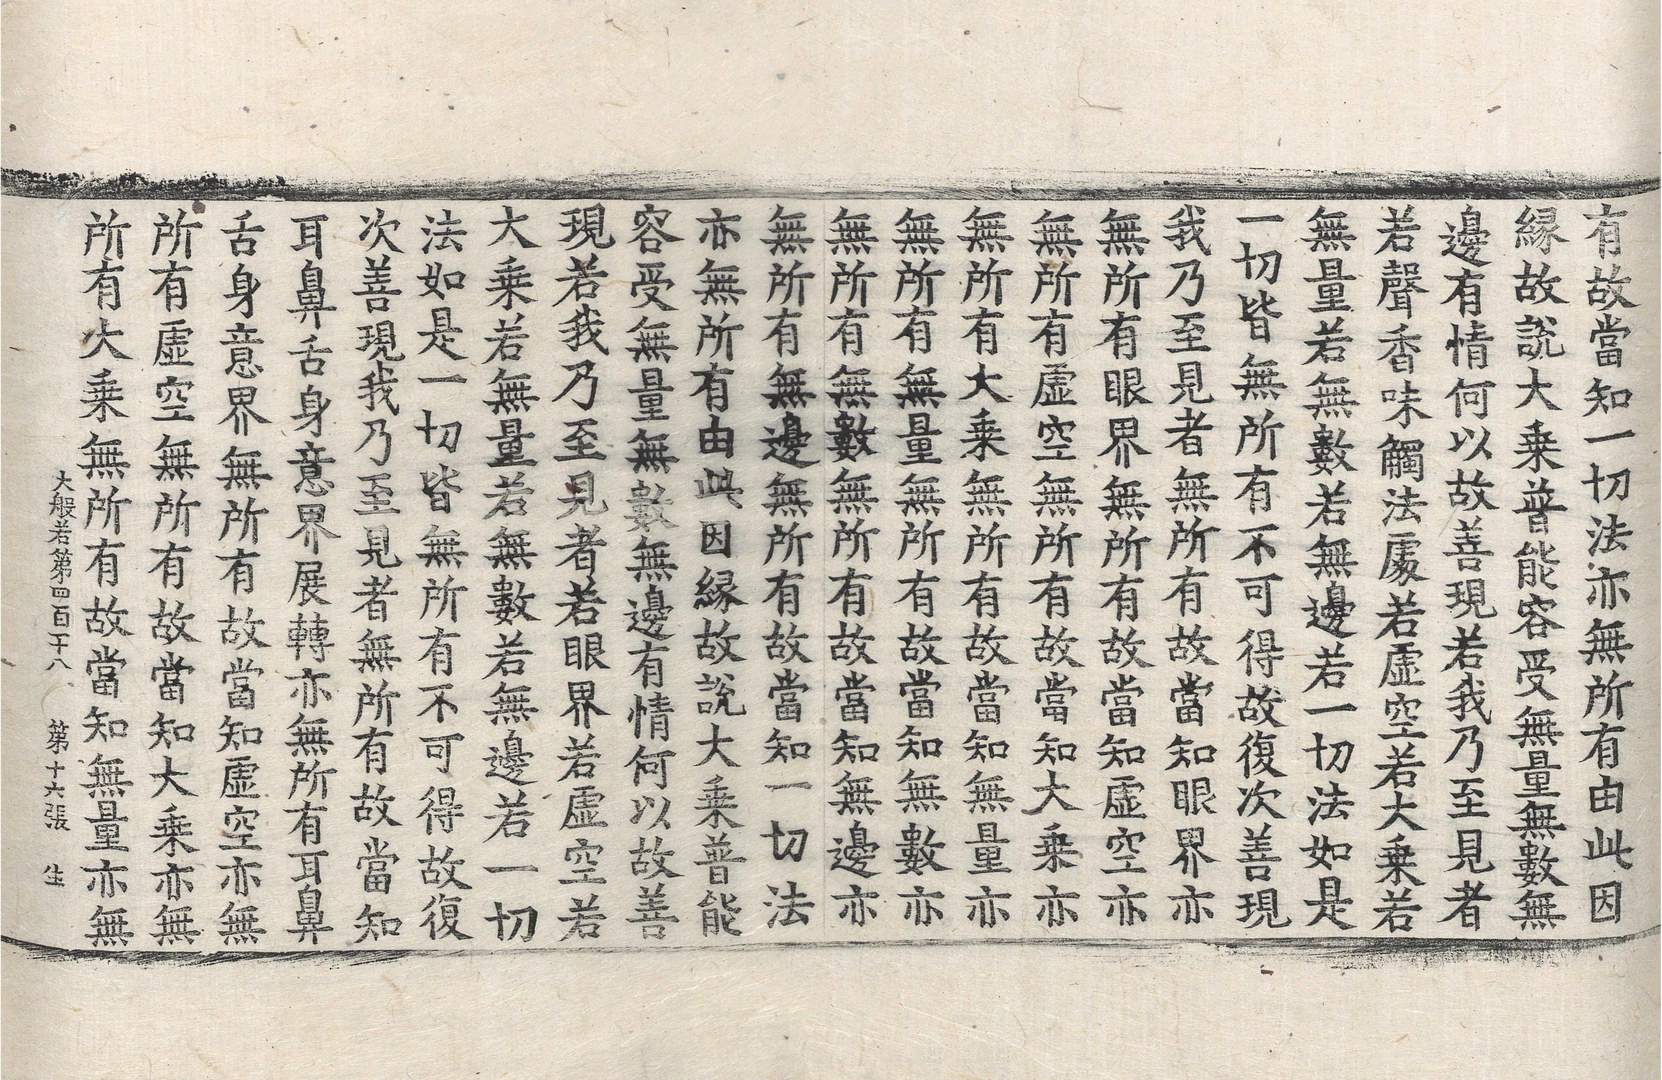 有故當知一切法亦無所有由此因
縁故說大乗普能容受無量無數無
邊有情何以故善現若我乃至見者
若聲香味觸法處若虛空若大乗若
無量若無數若無邊若一切法如是
一切皆無所有不可得故復次善現
我乃至見者無所有故當知眼界亦
無所有眼界無所有故當知虛空亦
無所有虛空無所有故當知大乗亦
無所有大乗無所有故當知無量亦
無所有無量無所有故當知無數亦
無所有無數無所有故當知無邊亦
無所有無邊無所有故當知一切法
亦無所有由此因縁故說大乗普能
容受無量無數無邊有情何以故善
現若我乃至見者若眼界若虛空若
大乗若無量若無數若無邊若一切
法如是一切皆無所有不可得故復
次善現我乃至見者無所有故當知
耳鼻舌身意界展轉亦無所有耳鼻
舌身意界無所有故當知虛空亦無
所有虛空無所有故當知大乗亦無
所有大乗無所有故當知無量亦無
大般若第四百十八 第十六張 生